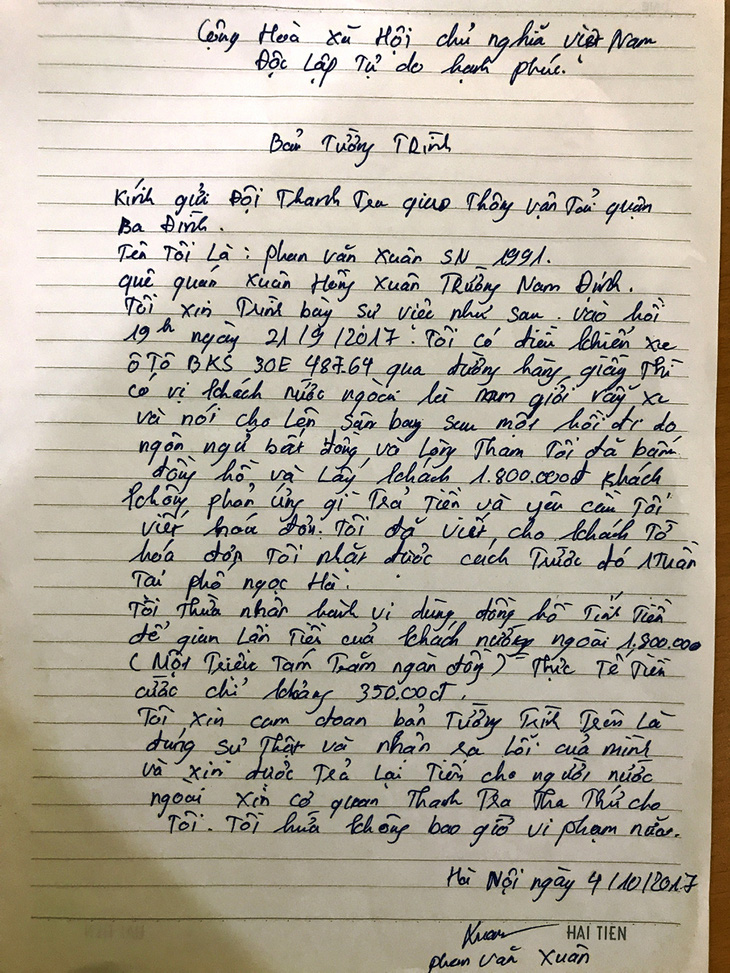 Cộng Hoà Xã Hội chủ nghĩa việt Nam
Độc Lập Tự do hạnh phúc.
Bản Tường Trình
Kính gửi Đội Thanh Tra giao Thông vận Tải quận
Ba Đình.
Tên Tôi Là : phan văn Xuân SN_1991.
quê quán Xuân Hồng Xuân Trường Nam Định.
Tôi xin Trình bày sự việc như sau. vào hồi
19h ngày 21/9/2017. Tôi có điều khiển xe
Ô TÔ BKS 30E 487.64 qua đường hàng giấy Thì
có vị khách nước ngoài là nam giới vẫy xe
và nói cho Lên sân bay sau một hồi đi do
ngôn ngữ bất đồng và Lòng Tham Tôi đã bấm
đồng hồ và Lấy khách 1.800.000đ khách
không phản ứng gì Trả Tiền và yêu cầu Tôi
viết hoá đơn. Tôi đã viết cho khách Tờ
hóa đơn Tôi nhặt được cách Trước đó 1 Tuần
Tại phố ngọc Hà.
Tôi Thừa nhận hành vi dùng đồng hồ Tính Tiền
để gian Lận Tiền của khách nướng ngoài 1.800.000
(Một Triệu Tám Trăm ngàn đồng) Thực Tế Tiền
cước chỉ khảng 350.00đ.
Tôi xin cam đoan bản Tường Trình Trên Là
đúng sự Thật và nhận ra Lỗi của mình
và xin được Trả Lại Tiền cho người nước
ngoài xin cơ quan Thanh Tra Tha Thứ cho
Tôi. Tôi hứa không bao giờ vi phạm nữa.
Hà Nội ngày 4/10/2017
Xuân
HẢI TIẾN
phan văn Xuân